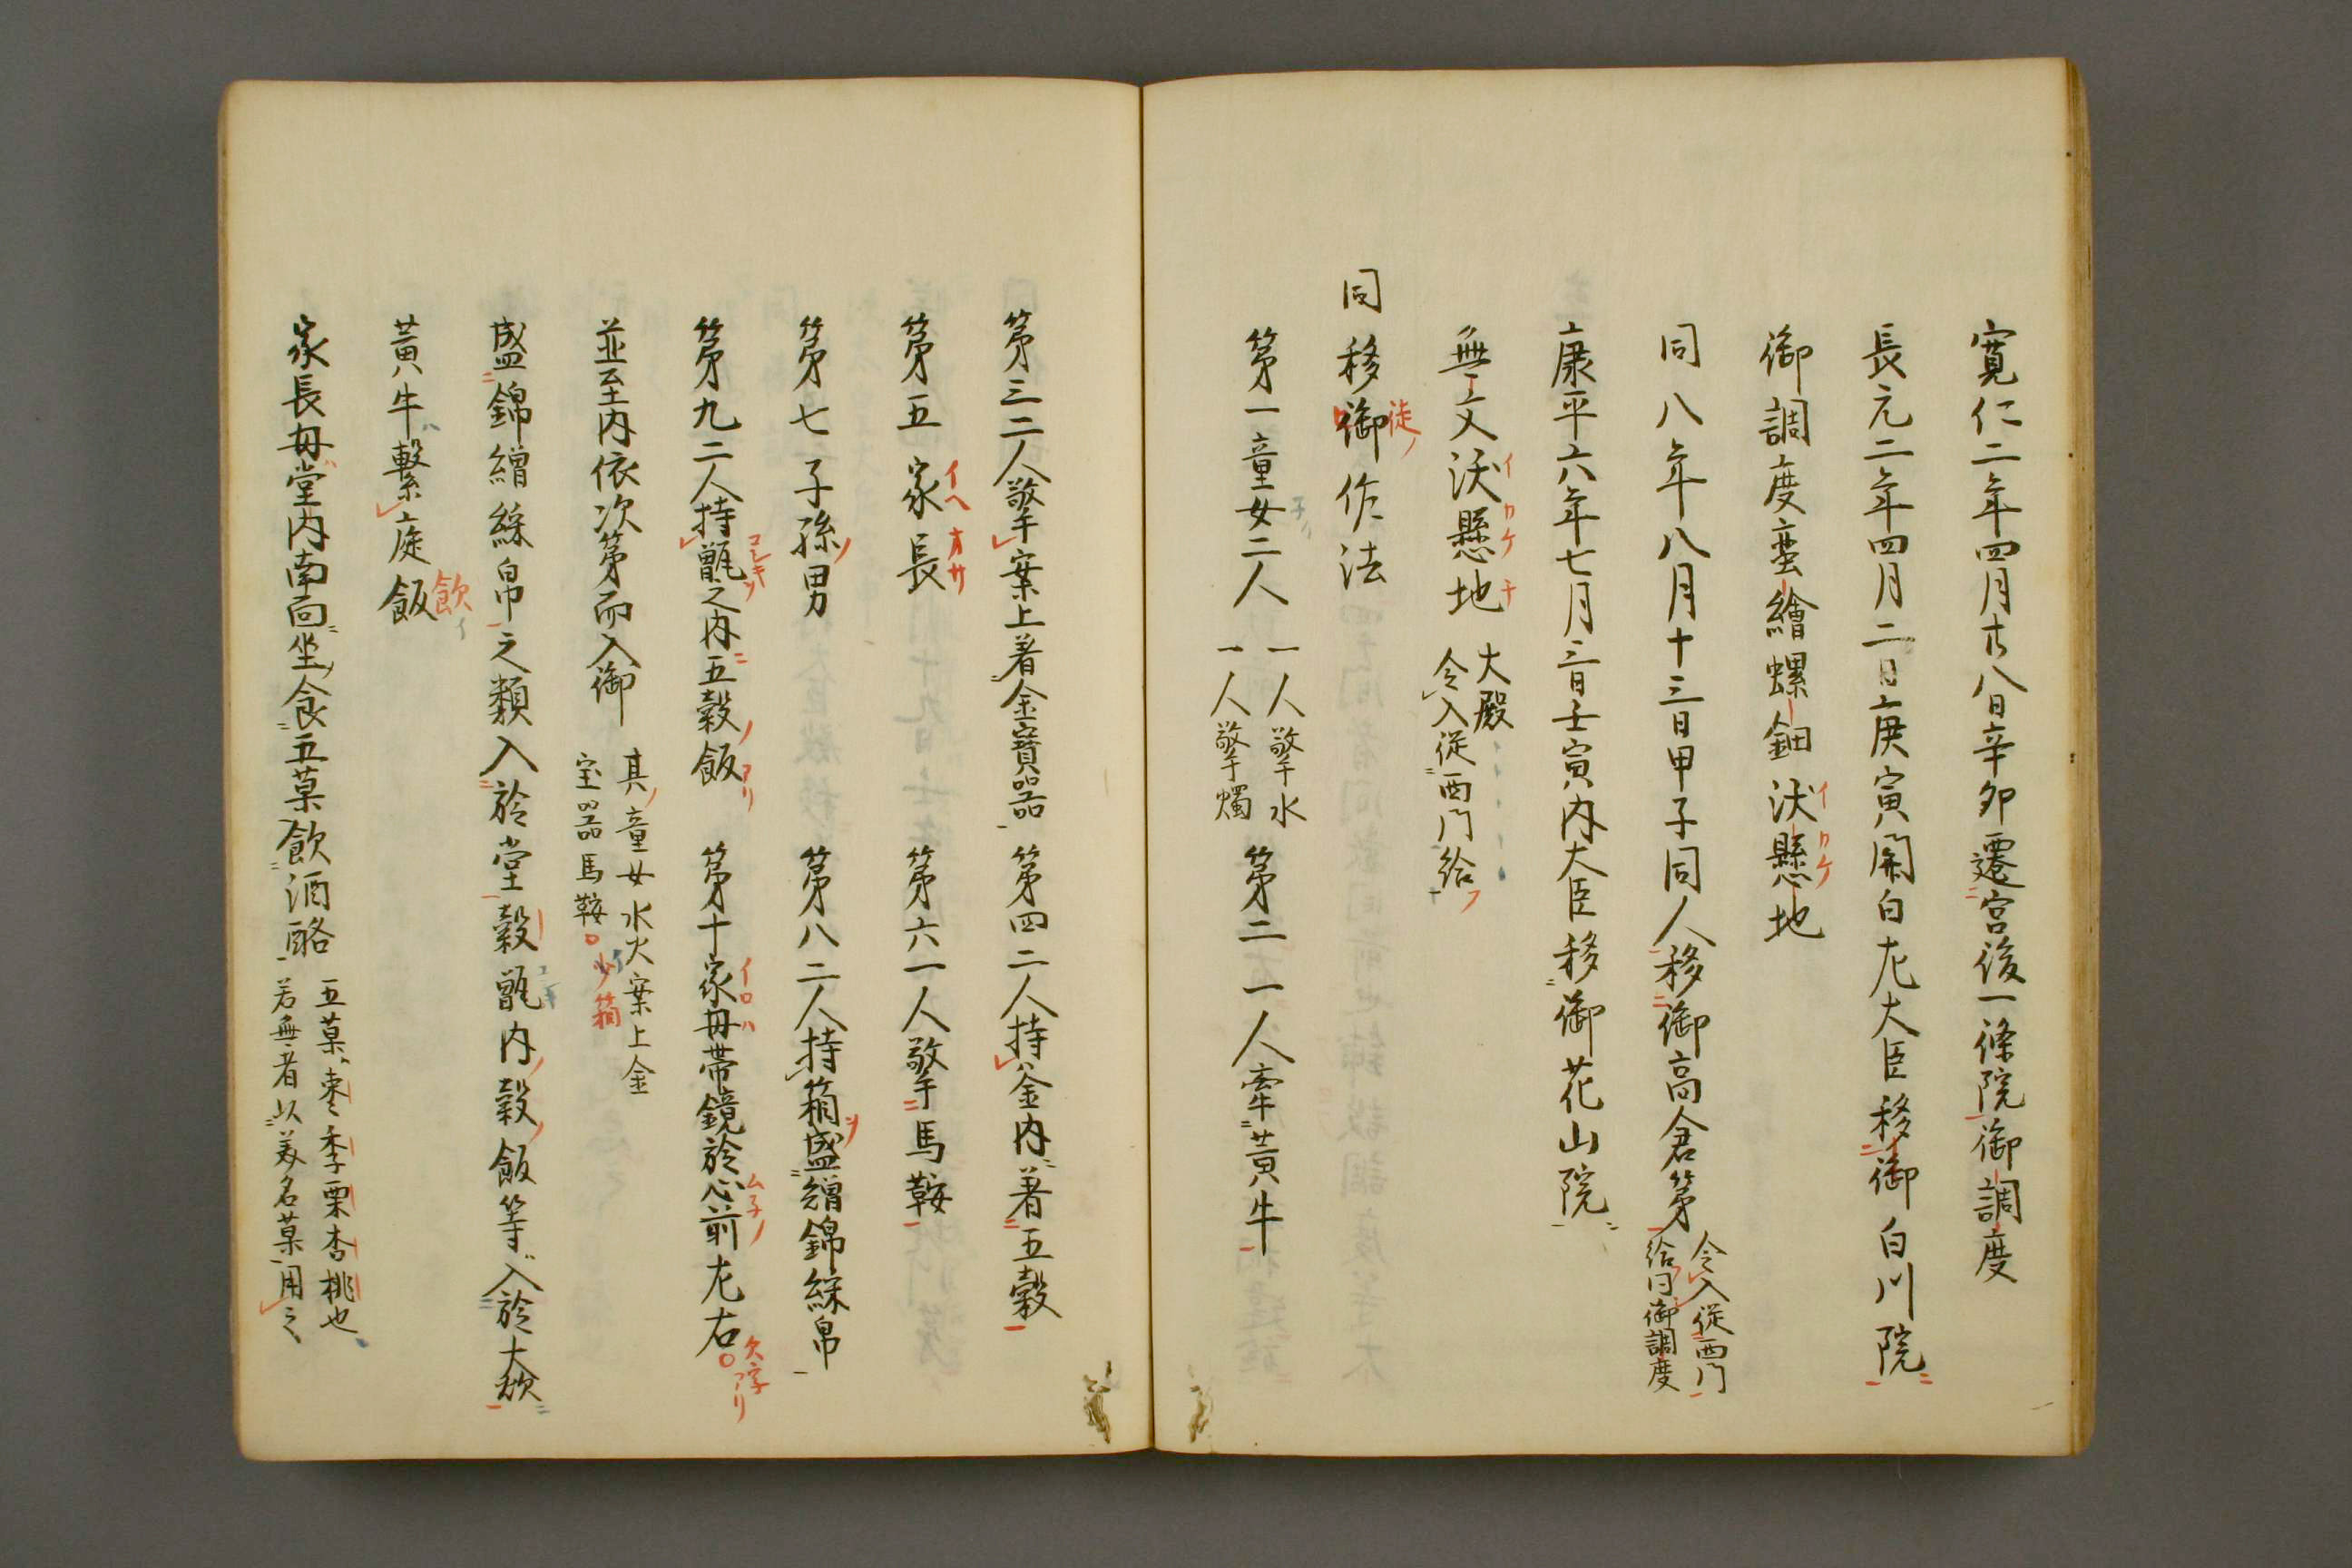 寛仁二年四月廿八日辛卯遷宮後一條院御調度
長元二年四月二日庚寅関白左大臣移御白川院
御調度蛮繪螺鈿沃懸地
イ カケ
同八年八月十三日甲子同人移御高倉第
令入從西門
給同御調度
康平六年七月三日壬寅内大臣移御花山院
無文沃懸地
イ カケ チ
大殿
令入從西門給
同移御作法
徒
第一童女二人
一人擎水
一人擎燭
第二一人牽黄牛
第三二人擎案上着金寶器 第四二人持釜内着五穀
第五家長 第六一人擎馬鞍
イヘ オサ
第七子孫男 第八二人持箱盛繒錦綵帛
第九二人持甑之内五穀飯 第十家母帯鏡於心前左右
コシキ
イロハ
ムネノ
欠字アリ
並至内依次第而入御
其童女水火案上金
宝器馬鞍
箱
盛錦繒綵帛之類入於堂穀甑内穀飯等入於大
黄牛繫庭飯
飲イ
家長毎堂内南面坐食五菓飲酒酪
五菓棗李栗杏桃也
若無者以美名菓用之